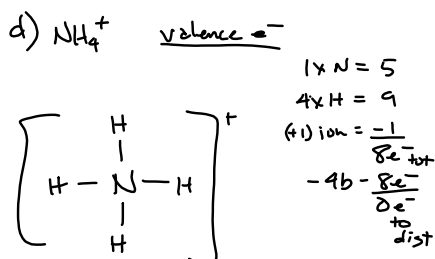 d) NH₄⁺ valence e⁻
1 x N = 5
4 x H = 9
(+1) ion = -1
8e⁻ tot
-4b - 8e⁻
0e⁻
to
dist
[ ]⁺
H
H - N - H
H